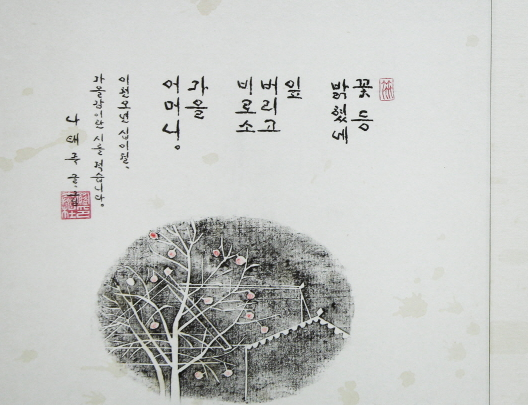 꽃등
밝혔네
잎
버리고
비로소
가을
어머님.
이천오년 십이월,
가을감이란 시를 적습니다.
나태주 글